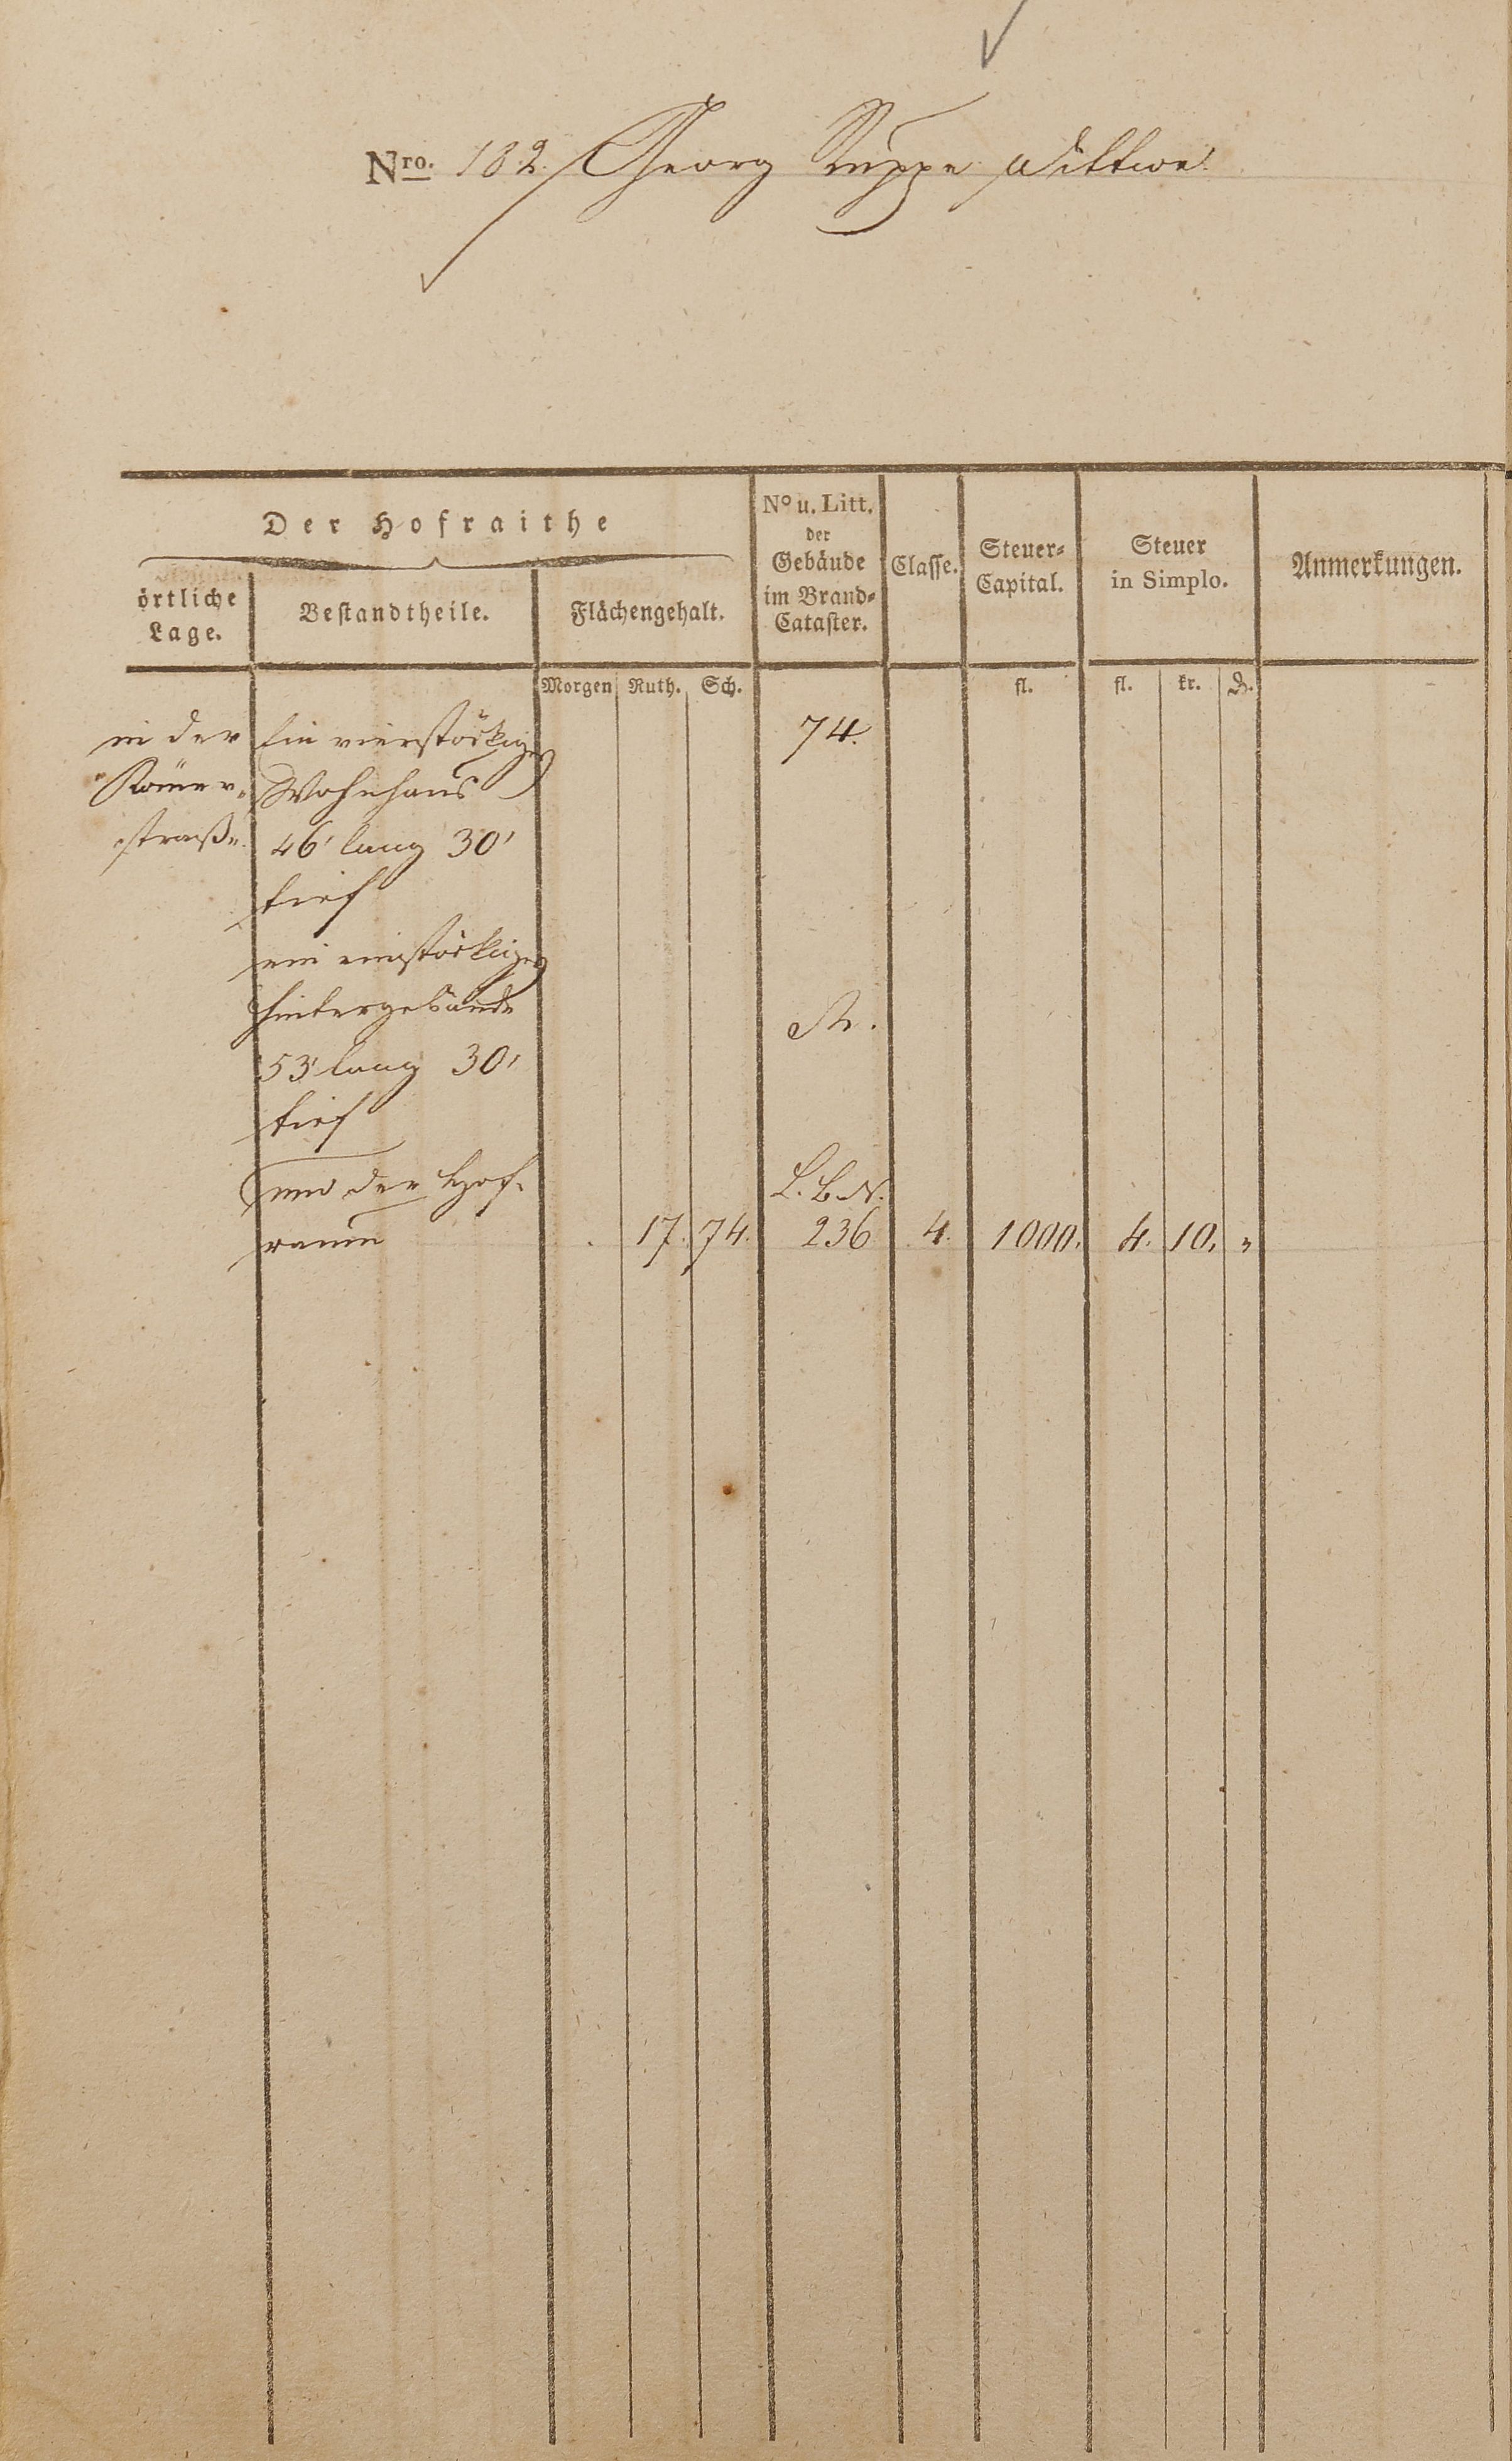 Nro. 182. Georg Ruppe Wittwe.
Der Hofraithe
No u. Litt.
der
Gebäude
im Brand-
Cataster.
Classe.
Steuer-
Capital.
Steuer
in Simplo.
Anmerkungen.
örtliche
Lage.
Bestandtheile.
Flächengehalt.
Morgen Ruth. Sch. fl. fl. kr. d.
in der Ein vierstöckiges 74.
Römer- Wohnhaus
straße. 46' lang 30'
tief
ein einstöckiges
Hintergebäude
53' lang 30'
tief
und der Hof- L. B. N.
raum . 17. 74. 236 4. 1000. 4. 10. „